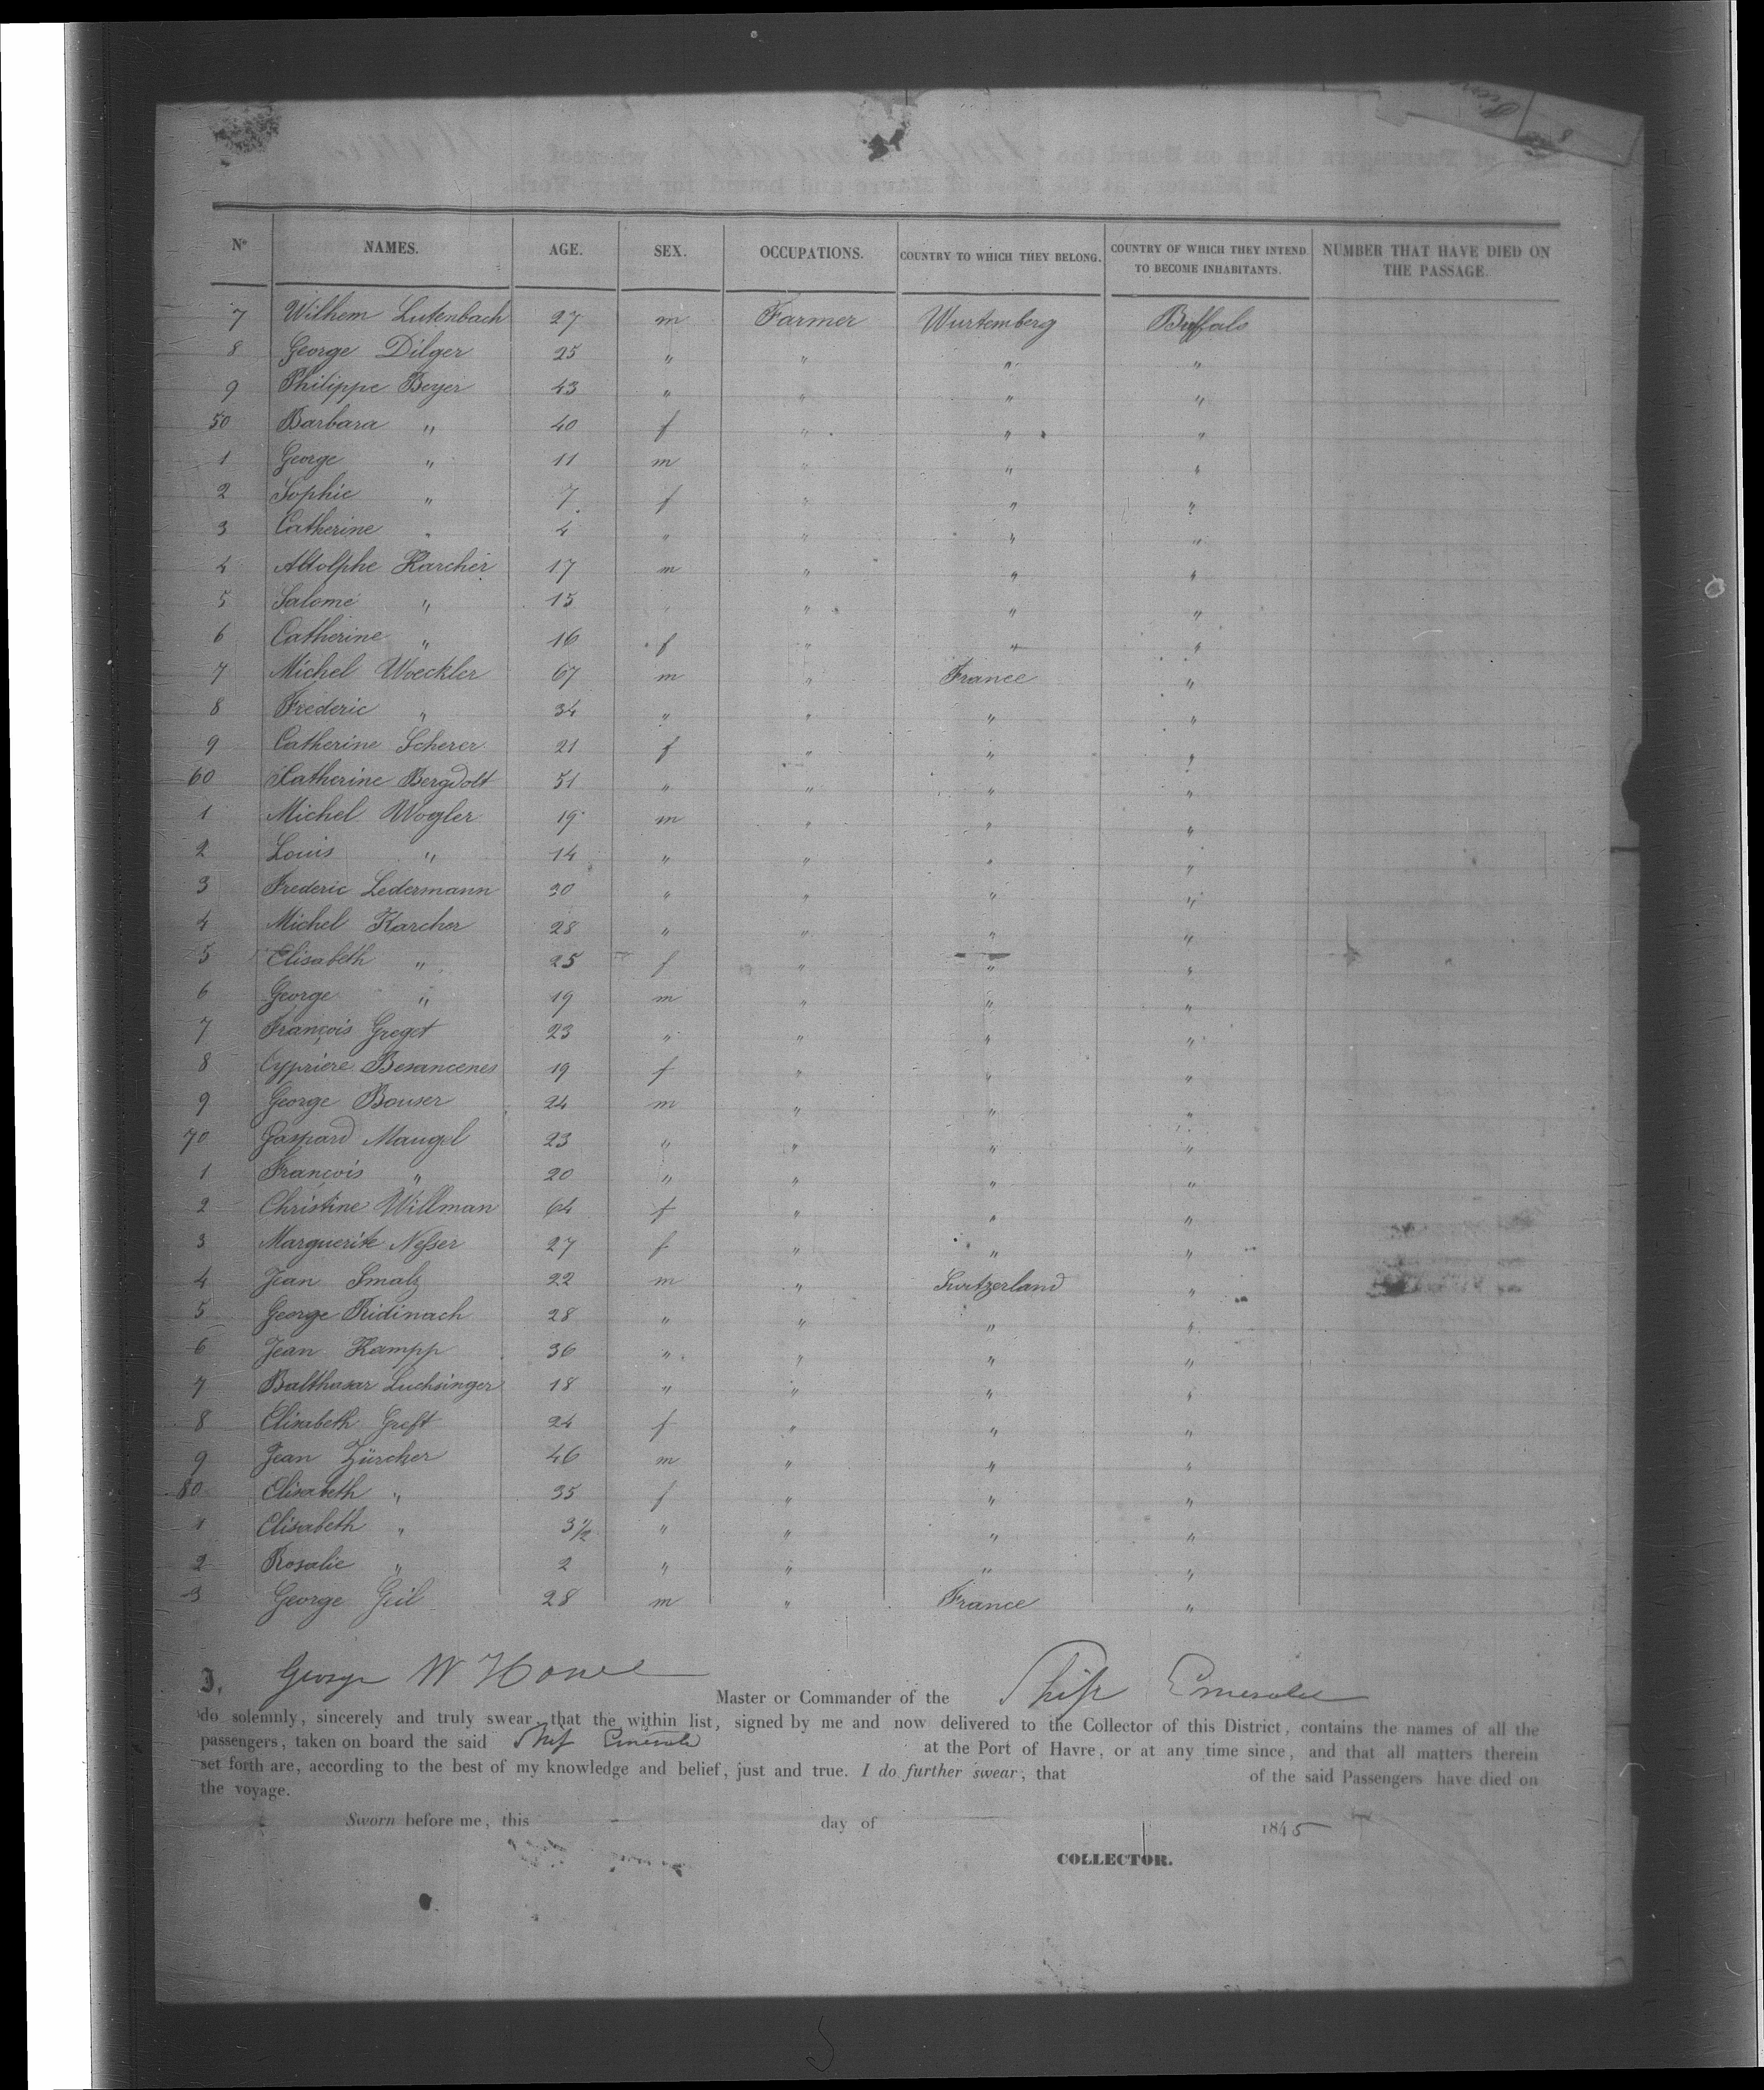 Nº NAMES. AGE. SEX. OCCUPATIONS. COUNTRY TO WHICH THEY BELONG. COUNTRY OF WHICH THEY INTEND TO BECOME INHABITANTS. NUMBER THAT HAVE DIED ON THE PASSAGE.
7 Wilhem Lutenbach 27 m Farmer Wurtemberg Buffalo
8 George Dilger 25 " " " "
9 Philippe Beyer 43 " " " "
50 Barbara " 40 f " " "
1 George " 11 m " " "
2 Sophie " 7 f " " "
3 Catherine " 4 " " " "
4 Adolphe Karcher 17 m " " "
5 Salome " 15 " " " "
6 Catherine " 16 f " " "
7 Michel Woeckler 67 m " France "
8 Frederic " 34 " " " "
9 Catherine Scherer 21 f " " "
60 Catherine Bergdolt 51 " " " "
1 Michel Wogler 19 m " " "
2 Louis " 14 " " " "
3 Frederic Ledermann 30 " " " "
4 Michel Karcher 28 " " " "
5 Elisabeth " 25 f " " "
6 George " 19 m " " "
7 François Greget 23 " " " "
8 Cypriere Besancenes 19 f " " "
9 George Bouser 24 m " " "
70 Gaspard Maugel 23 " " " "
1 François " 20 " " " "
2 Christine Willman 64 f " " "
3 Marguerite Nesser 27 f " " "
4 Jean Smalz 22 m " Switzerland "
5 George Ridinach 28 " " " "
6 Jean Kampp 36 " " " "
7 Balthasar Luchsinger 18 " " " "
8 Elisabeth Greft 24 f " " "
9 Jean Zürcher 46 m " " "
80 Elisabeth " 35 f " " "
1 Elisabeth " 3½ " " " "
2 Rosalie " 2 " " " "
3 George Geil 28 m " France "
I, George W Howe Master or Commander of the Ship Emerald
do solemnly, sincerely and truly swear that the within list, signed by me and now delivered to the Collector of this District, contains the names of all the
passengers, taken on board the said Ship Emerald at the Port of Havre, or at any time since, and that all matters therein
set forth are, according to the best of my knowledge and belief, just and true. I do further swear, that of the said Passengers have died on
the voyage.
Sworn before me, this day of 1845
COLLECTOR.